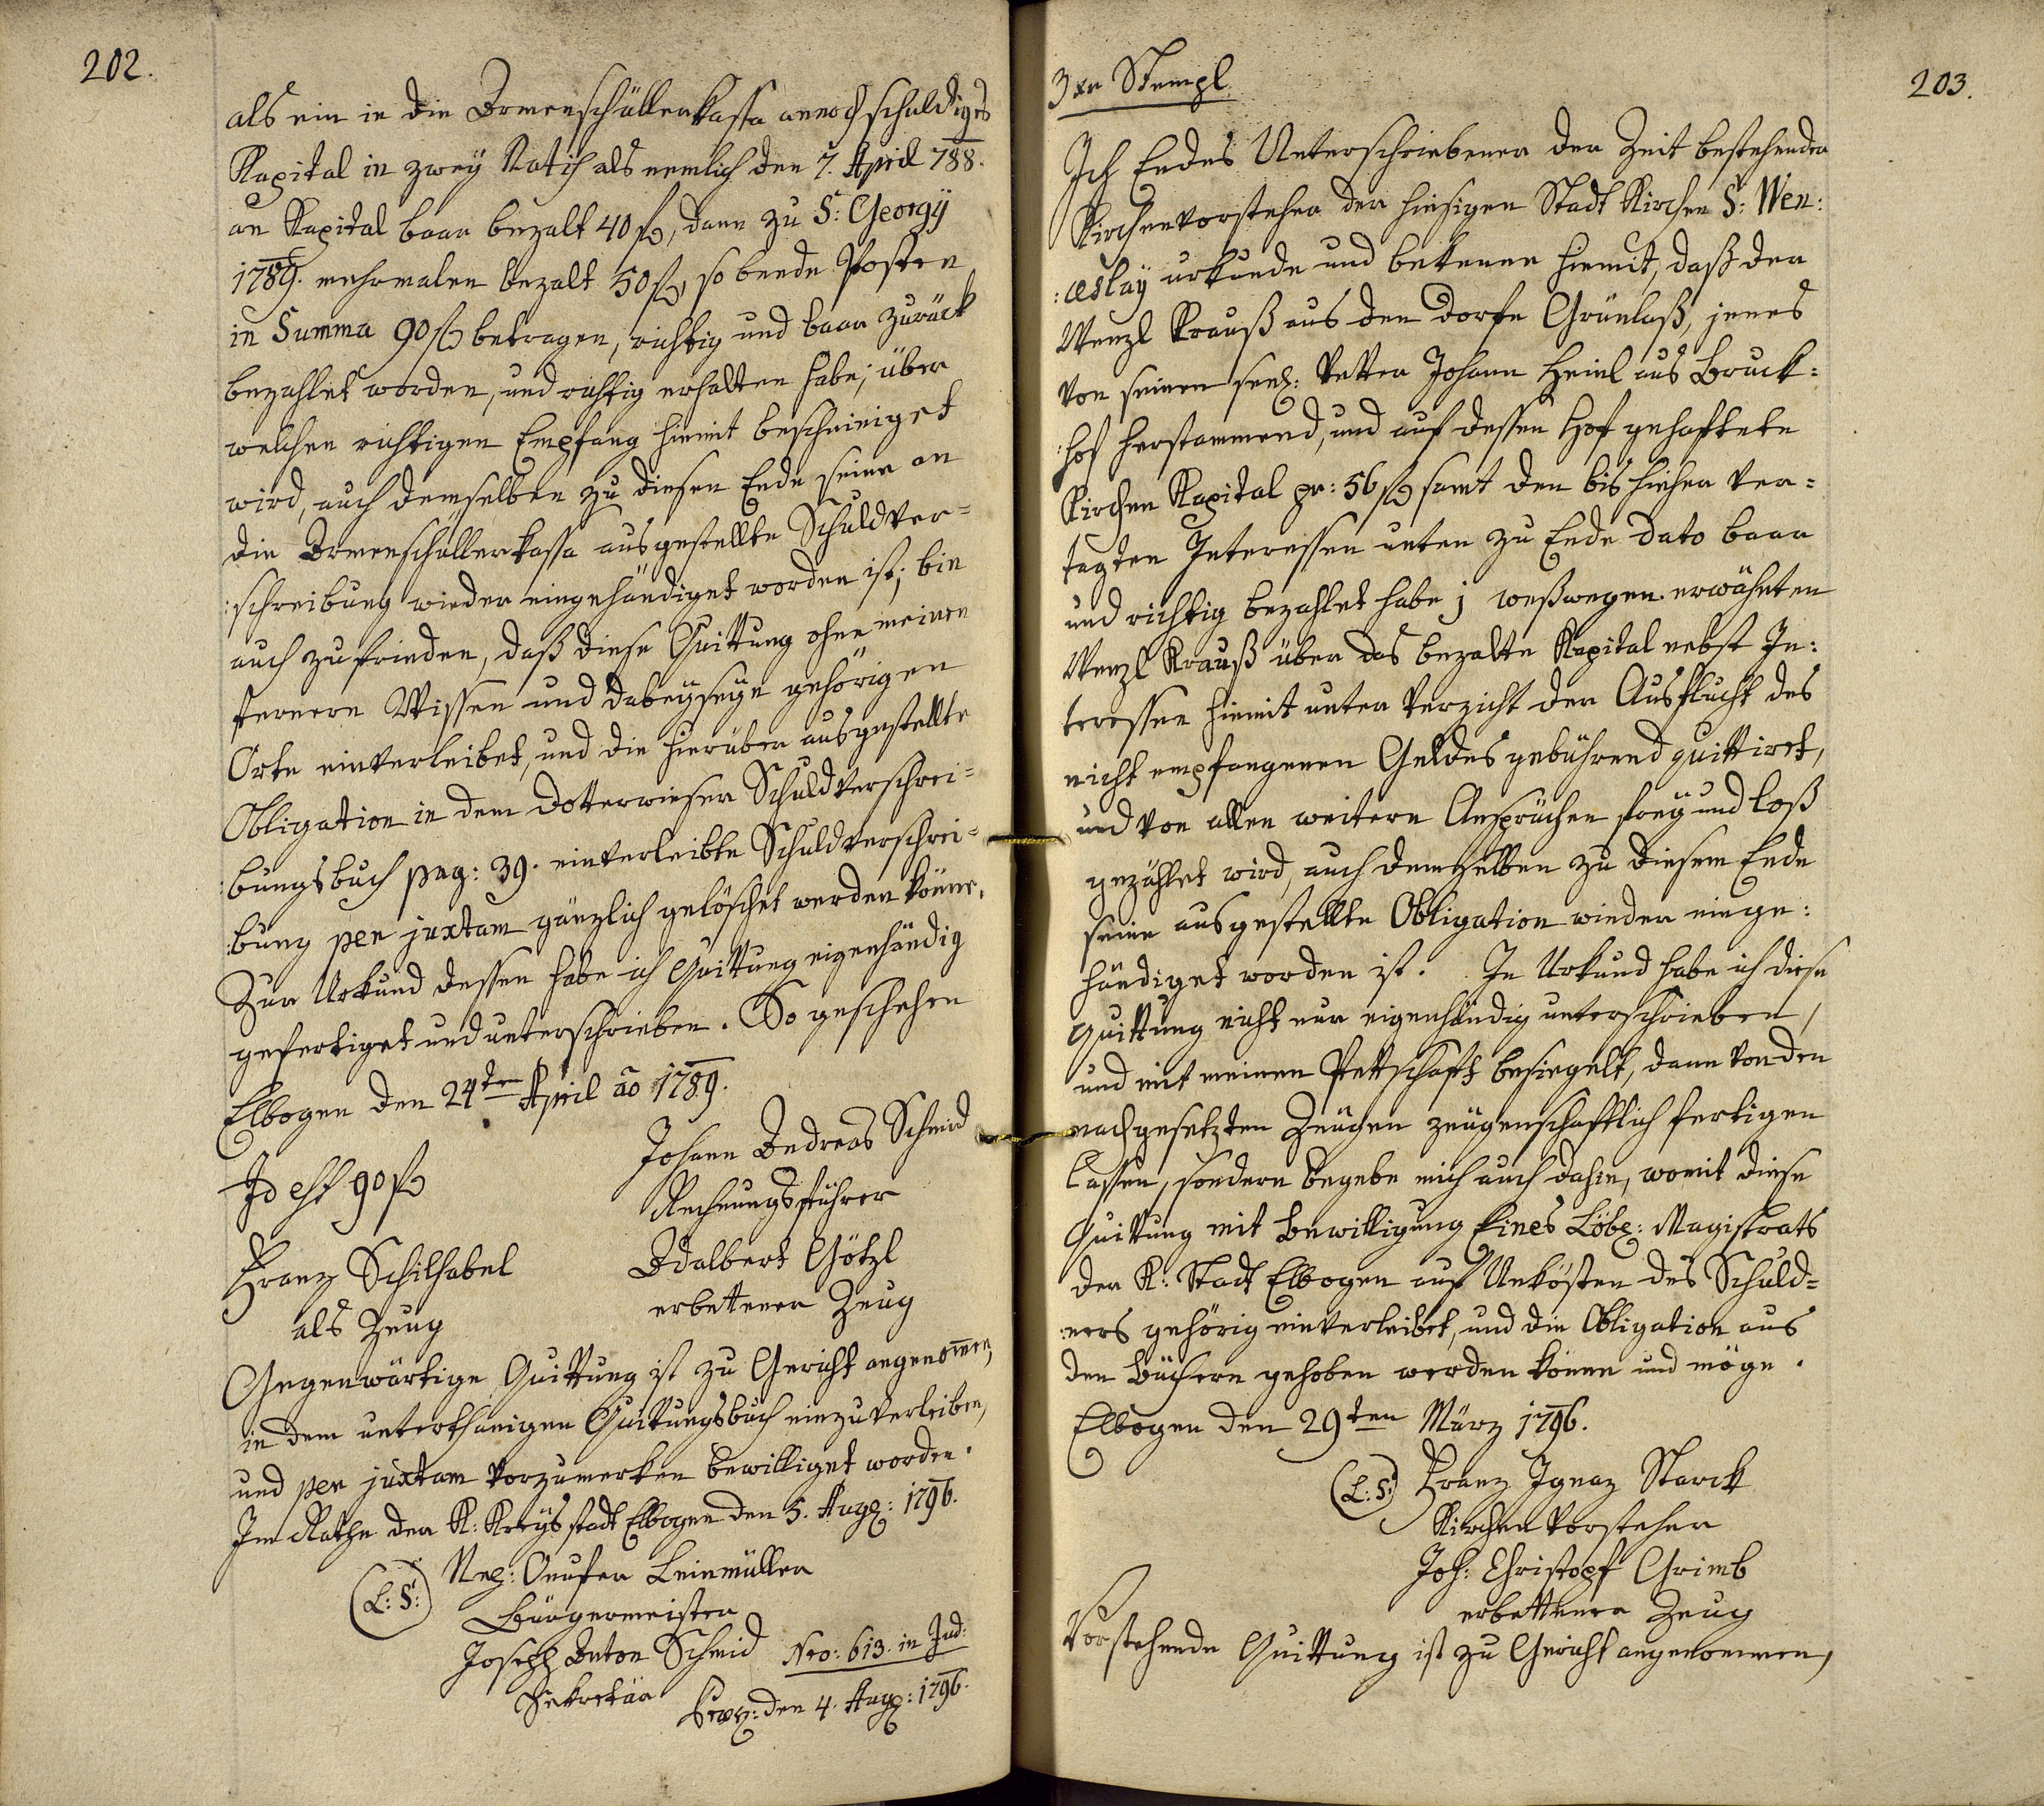 202.
als ein in die Armenschüllerkassa annoch schuldiges
Kapital in zweÿ Ratis als nemlich den 7. April 788.
an Kapital baar bezalt 40 fl, dann zu S: Georgÿ
1789. mehrmalen bezalt 50 fl, so beede Posten
in Summa 90 fl betragen, richtig und baar zurück
bezahlet worden, und richtig erhalten habe; über
welchen richtigen Empfang hiemit bescheiniget
wird, auch demselben zu diesen Ende seine an
die Armenschüllerkassa ausgestellte Schuldver=
:schreibung wieder eingehändiget worden ist; bin
auch zufrieden, daß diese Quittung ohne meinen
fernern Wissen und dabeÿseÿn gehörigen
Orte einverleibet, und die hierüber ausgestellte
Obligation in dem Dotterwieser Schuldverschrei=
:bungsbuch pag: 39. einverleibte Schuldverschrei=
:bung per juxtam gänzlich gelöschet werden könne.
Zur Urkund dessen habe ich Quittung eigenhändig
gefertiget und unterschrieben. So geschehen
Elbogen den 24ten April ao 1789.
Id est 90 fl
Johann Andreas Schmid
Rechnungsführer
Franz Schilhabel
als Zeug
Adalbert Götzl
erbettener Zeug
Gegenwärtige Quittung ist zu Gericht angenomen,
in dem unterthanigen Quittungsbuch einzuverleiben,
und per juxtam vorzumerken bewilliget worden.
Im Rathe der K: Kreÿsstadt Elbogen den 5. Aug: 1796.
(L: S:)
Onufer Leinmüller
Bürgermeister
Joseph Anton Schmid
Sekretär
Nro: 613. in Jud:
den 4. Aug: 1796.
203.
3 xr Stempl
Ich Endes Unterschriebener der Zeit bestehender
Kirchenvorsteher der hiesigen Stadt Kirchen S: Wen:
:ceslaÿ urkunde und bekenne hiemit, daß der
Wenzl Krauß aus den Dorfe Grünlaß, jenes
von seinen seel: Vetter Johann Heinl aus Bruck=
:hof herstammend, und auf dessen Hof gehaftete
Kirchen Kapital pr: 56 fl samt den bis hieher ver=
tagten Interessen unten zu Ende dato baar
und richtig bezahlet habe; weßwegen erwähnten
Wenzl Krauß über das bezalte Kapital nebst In:
teressen hiemit unter Verzicht der Ausflucht des
nicht empfangenen Geldes gebührend quittiret,
und von allen weitern Ansprüchen freÿ und loß
gezählet wird, auch demselben zu diesem Ende
seine ausgestellte Obligation wieder einge:
händiget worden ist. In Urkund habe ich diese
Quittung nicht nur eigenhändig unterschrieben,
und mit meinen Pettschaft besiegelt, dann von den
nachgesetzten Zeugen zeugenschaftlich fertigen
lassen, sondern begebe mich auch dahin, womit diese
Quittung mit Bewilligung Eines Löbl: Magistrats
der K: Stadt Elbogen auf Unkösten des Schuld=
:ners gehörig einverleibet, und die Obligation aus
den Büchern gehoben werden könne und möge.
Elbogen den 29ten März 1796.
(L: S:) Franz Ignaz Starck
Kirchenvorsteher
Joh: Christoph Grimb
erbettener Zeug
Vorstehende Quittung ist zu Gericht angenommen,